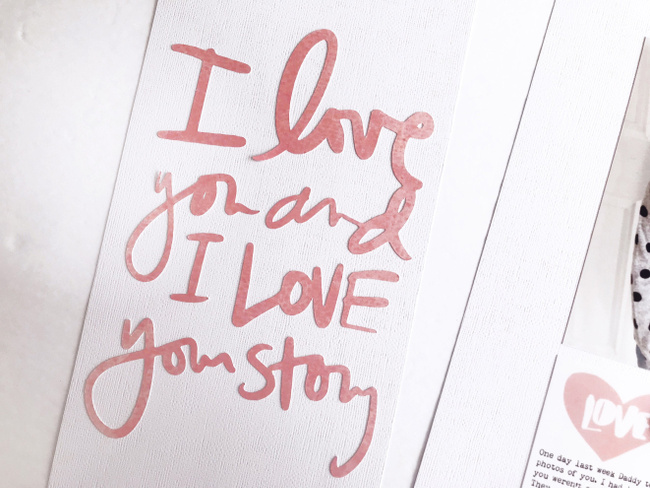 I love
you and
I LOVE
your story
LOVE
One day last week Daddy to
photos of you. i had
you weren't
They